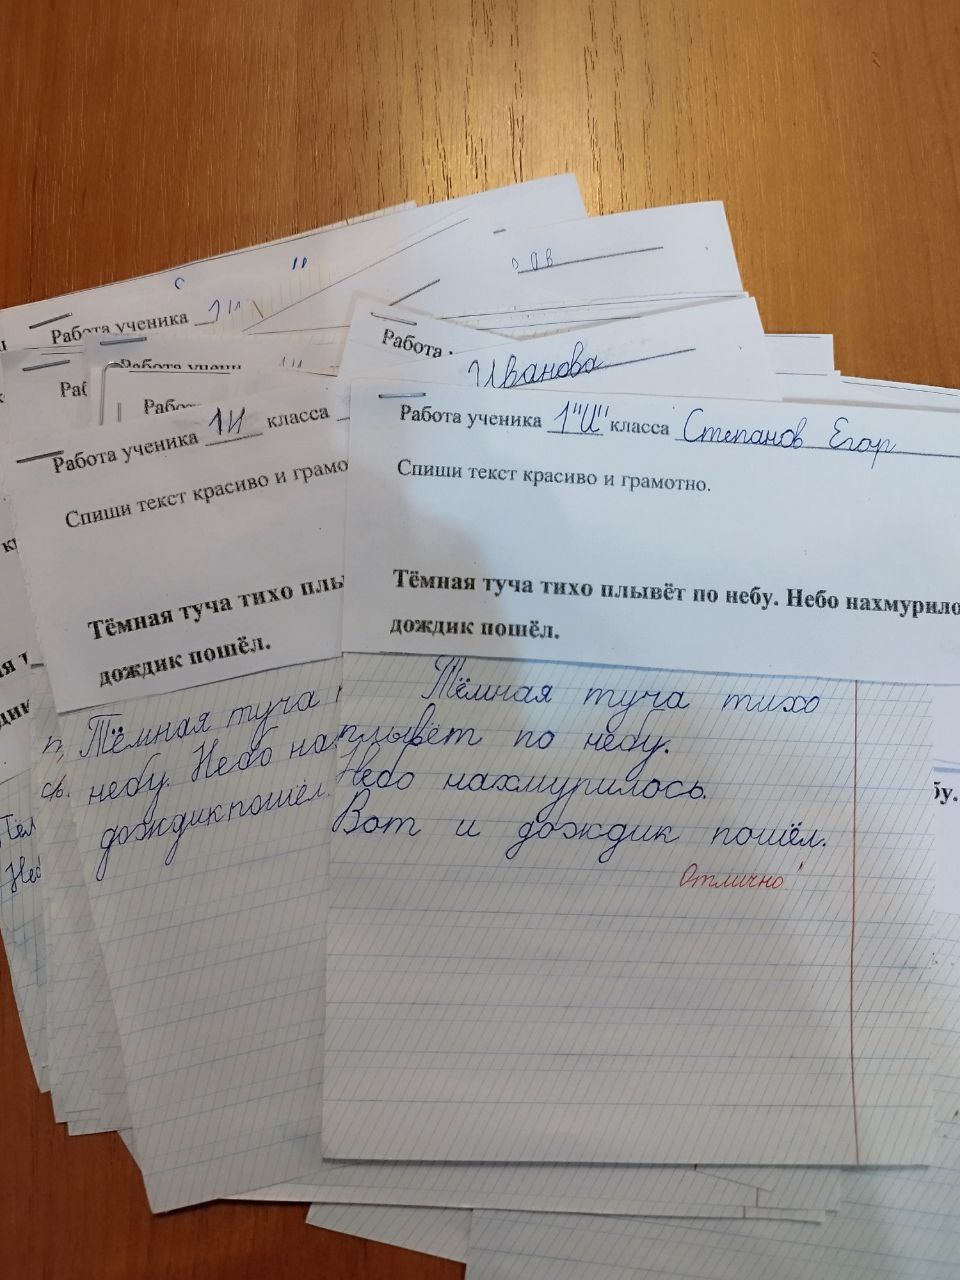 Работа ученика
Работа
Иванова
Работа ученика 1"И" класса Степанов Егор
Спиши текст красиво и грамотно.
Тёмная туча тихо плывёт по небу. Небо нахмурило
дождик пошёл.
Тёмная туча тихо
плывёт по небу.
Небо нахмурилось.
Вот и дождик пошёл.
Отлично!
Работа ученика 1И класса
Спиши текст красиво и грамо
Тёмная туча тихо плы
дождик пошёл.
Тёмная туча
небу. Небо на
дождик пошёл.